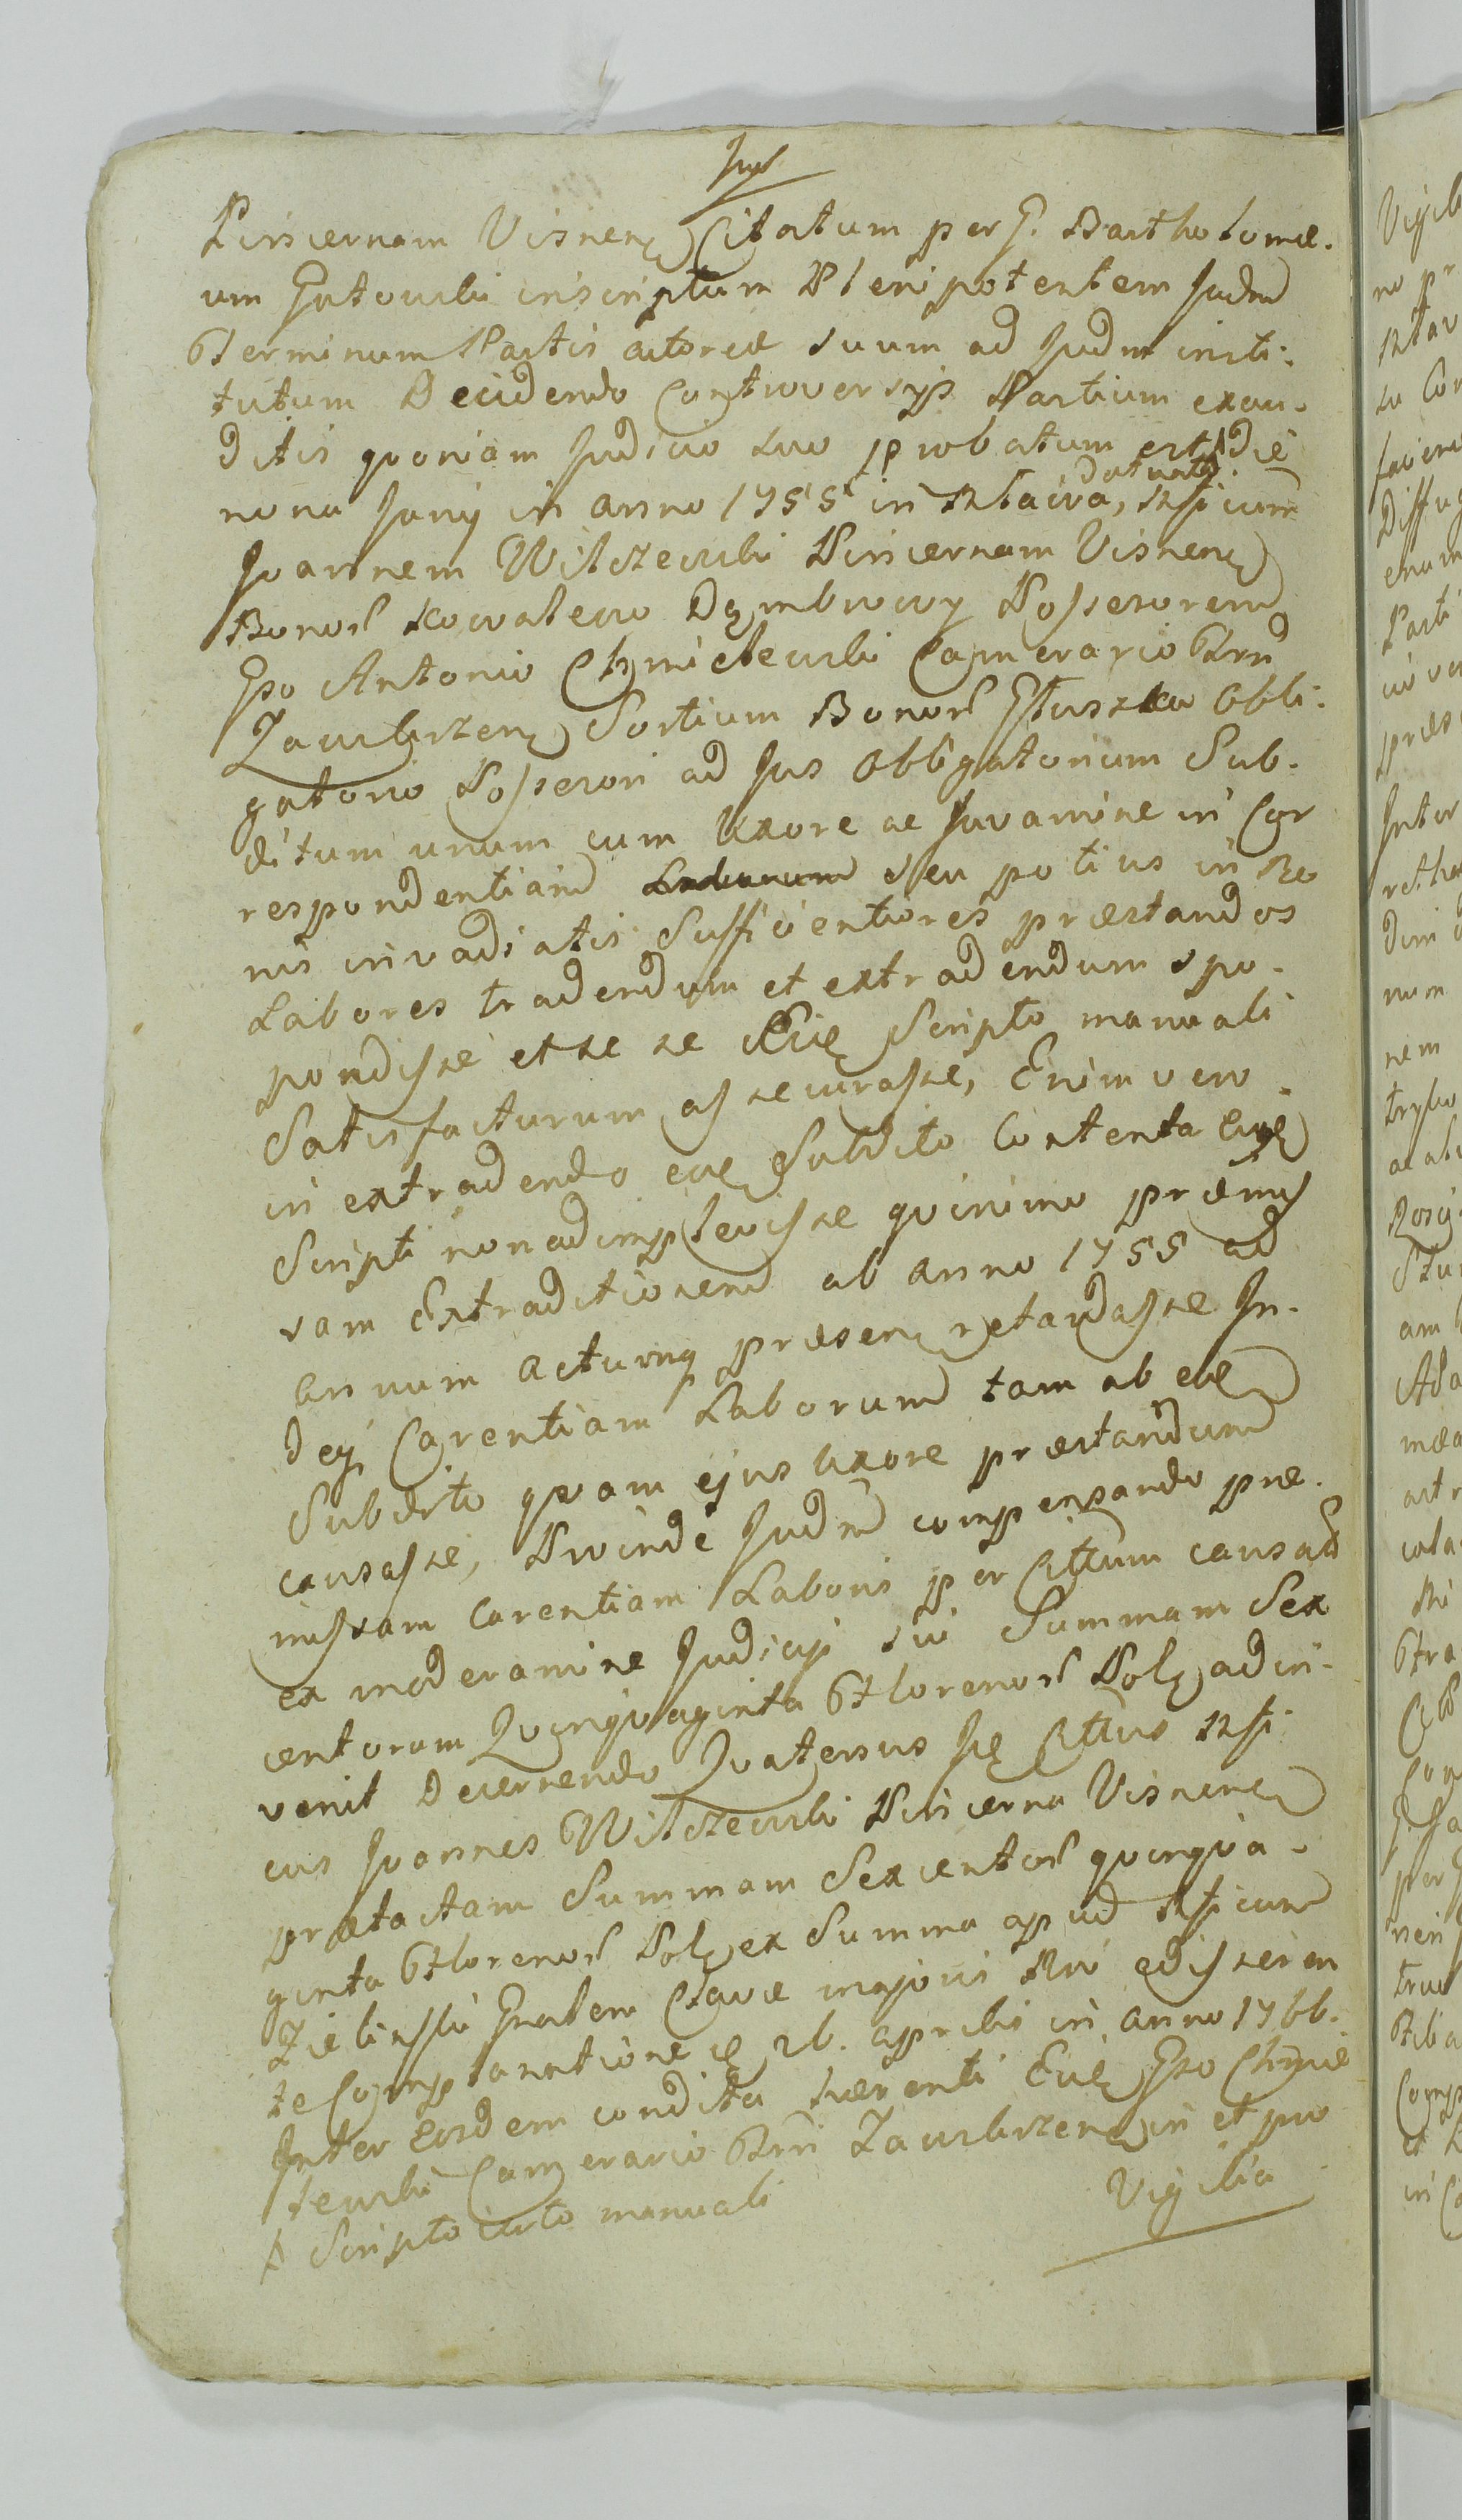 Pincernam Visnen Citatum per G. Bartholomæ-
um Gutowski inscriptum Plenipotentem Judm
Terminum Partis actoreæ suum ad Judm insti-
tutum Decidendo Controversijs Partium exau-
ditis quoniam Judicio suo probatum est Die
nona Juny in anno 1755 in datum Mficum
Joannem Wilczewski Pincernam Visnen
Bonor Kowalewo Dęmbrowy Possesorem
Gso Antonio Chmielewski Camerario Trrū
Zawskrzen Sortium Bonor Głuszka Obli-
gatorio Possesori ad Jus Obligatorium Sub-
ditum unum cum Uxore ac Juvamine in Cor
respondentiam seu potius in Bo
nis invadiatis Sufficientiores præstandos
Labores tradendum et extradendum spo-
pondisse et se se Scripto manuali
Satisfacturum assecurasse, Enimvero
in extradendo eve Subdito Contenta
Scripti non adimplevisse quinimo præmis
sam Extraditionem ab anno 1755 ad
annum actumq præsen retardasse In-
deq Carentiam Laborum tam ab eve
Subdito quam ejus Uxore præstandum
causasse, Proinde Judm compensando præ-
missam Carentiam Laboris per Cittum causat
ex moderamine Judicij sui Summam Sex
centorum Quinquaginta Florenor Pol adin-
venit Decernendo Quatenus Cittus Mfi
cus Joannes Wilczewski Pincerna Visnen
prætactam Summam Sexcentor quinqua-
ginta Florenor Pol ex Summa apud Mficum
Zielinski
te Complanatione 26. aprilis in anno 1766.
Inter eosdem condita hærenti Gso Chmie
lewski Camerario Trrū Zawskrzen in et pro
Scripto isto manuali
Vigilia